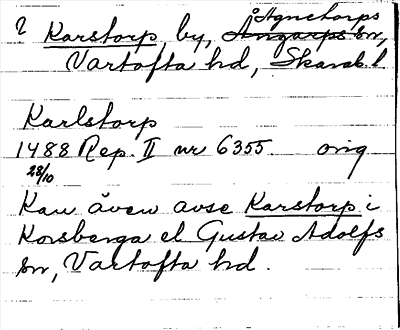 ? Karstorp, by, Ångarps Ågnetorps sn,
Vartofta hd, Skarab. l.
Karlstorp
1488 Rep. II nr 6355. orig
28/10
Kan även avse Karstorp i
Korsberga el Gustav Adolfs
sn, Vartofta hd.